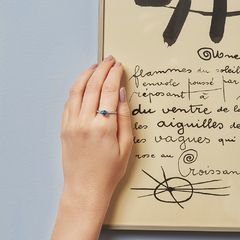 Une
flammes du soleil
envole poussé par
réposant à
du ventre de l
les aiguilles de
les vagues qui
rose au
croissan